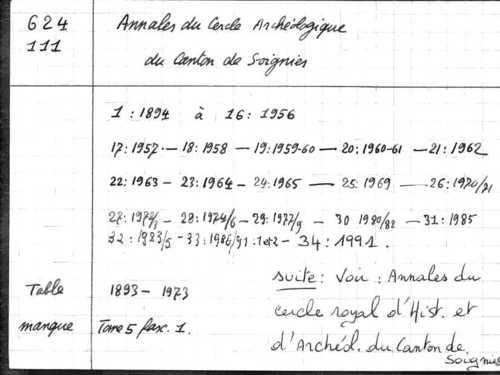 624
111
Annales du Cercle Archéologique
du Canton de Soignies
1 : 1894 à 16 : 1956
17 : 1957 - 18 : 1958 - 19 : 1959-60 - 20 : 1960-61 - 21 : 1962
22 : 1963 - 23 : 1964 - 24 : 1965 - 25 : 1969 - 26 : 1970/71
28 : 1974/6 - 29 : 1977/9 - 30 1980/82 - 31 : 1985
32 : 1983/5 - 33 : 1986/91 : 1et2 - 34 : 1991.
Table 1893 - 1973
manque Tome 5 fasc. 1.
suite : Voir : Annales du
cercle royal d'Hist. et
d'Archéol. du Canton de
Soignies